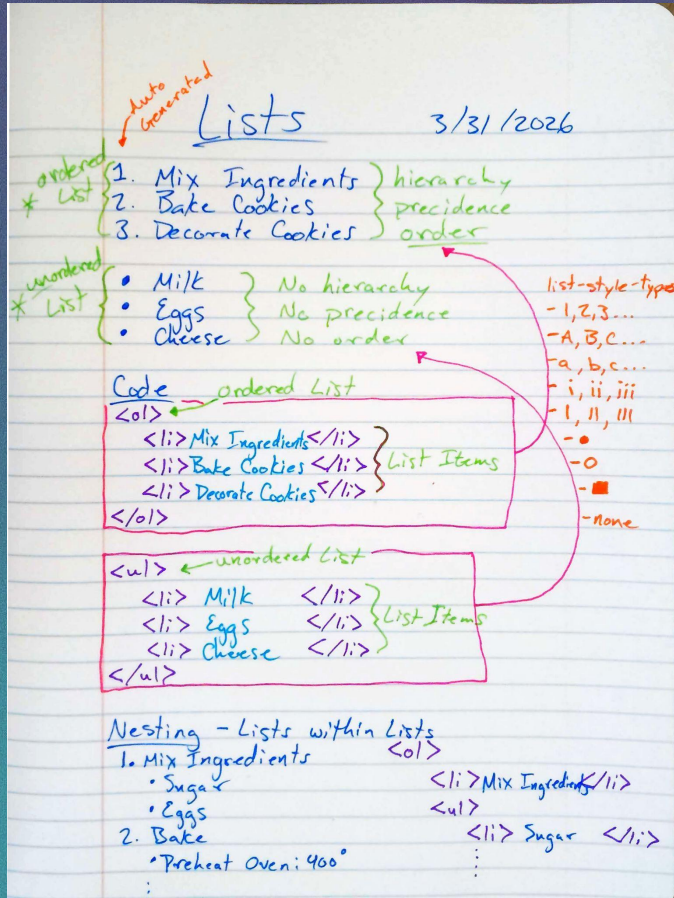 Auto
Generated
Lists
3/31/2026
* ordered
List
1. Mix Ingredients
2. Bake Cookies
3. Decorate Cookies
hierarchy
precidence
order
* unordered
List
• Milk
• Eggs
• Cheese
No hierarchy
No precidence
No order
list-style-types
- 1, 2, 3...
- A, B, C...
- a, b, c...
- i, ii, iii
- I, II, III
- ●
- ○
- ■
- none
Code
ordered List
<ol>
<li> Mix Ingredients </li>
<li> Bake Cookies </li>
<li> Decorate Cookies </li>
</ol>
List Items
unordered List
<ul>
<li> Milk </li>
<li> Eggs </li>
<li> Cheese </li>
</ul>
List Items
Nesting - Lists within Lists
1. Mix Ingredients
• Sugar
• Eggs
2. Bake
• Preheat Oven: 400°
⋮
<ol>
<li> Mix Ingredients </li>
<ul>
<li> Sugar </li>
⋮